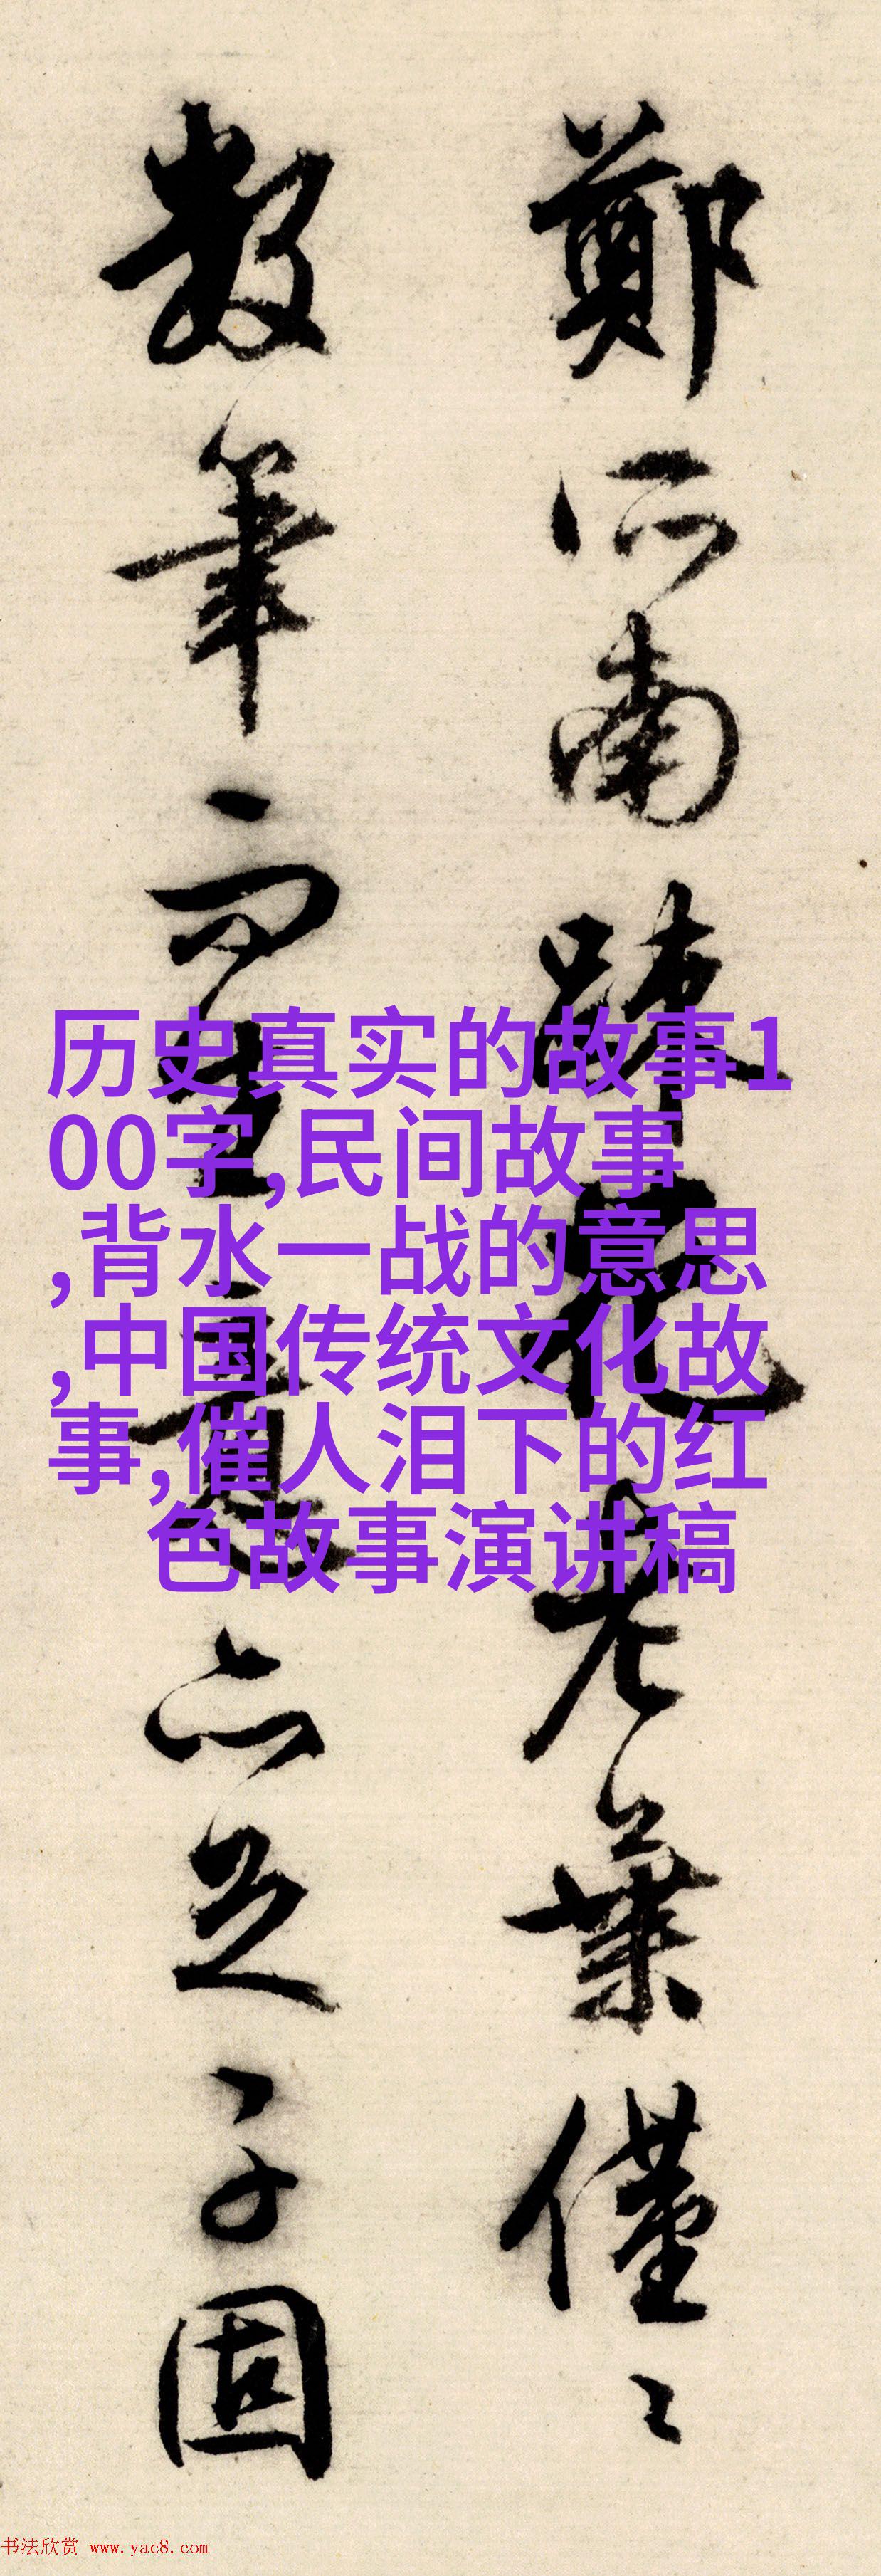 鄭所南疎花老葉僅〻
數筆而生意亦足子固
历史真实的故事1
00字,民间故事
,背水一战的意思
,中国传统文化故
事,催人泪下的红
色故事演讲稿
书法欣赏 www.yac8.com